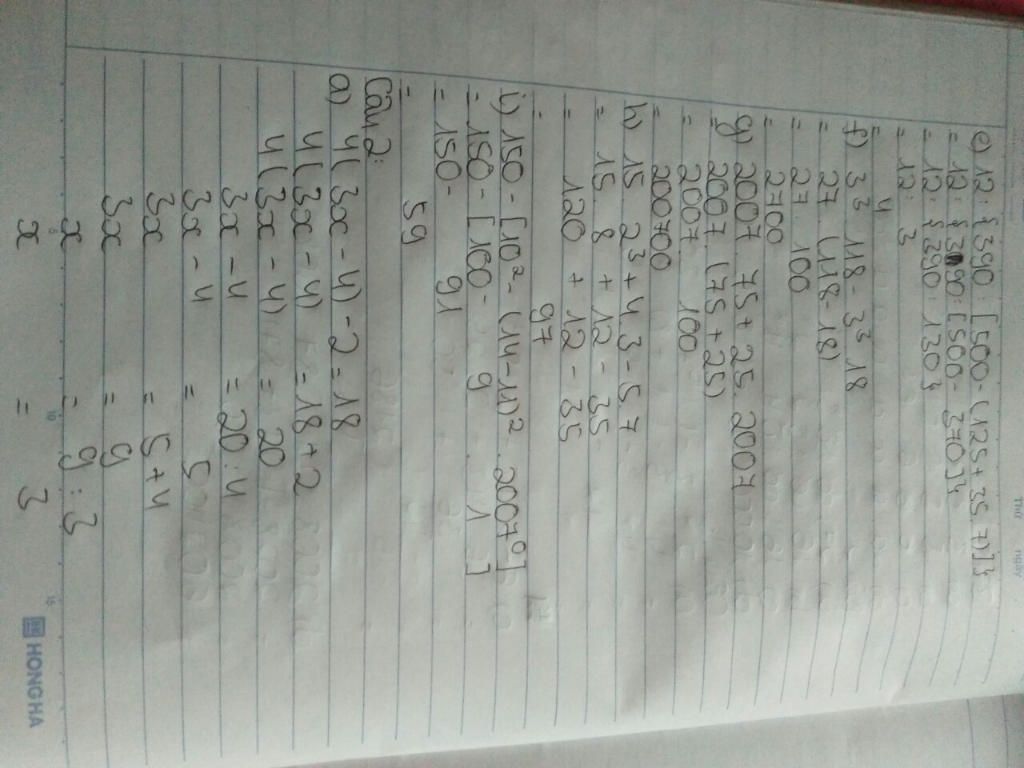 THỨ
NGÀY
e) 12 : { 390 : [500 - (125 + 35 . 7)]}
= 12 : { 390 : [500 - 370]}
= 12 : { 390 : 130 }
= 12 : 3
= 4
f) 3³ . 118 - 3³ . 18
= 27 . (118 - 18)
= 27 . 100
= 2700
g) 2007 . 75 + 25 . 2007
= 2007 . (75 + 25)
= 2007 . 100
= 200700
h) 15 . 2³ + 4 . 3 - 5 . 7
= 15 . 8 + 12 - 35
= 120 + 12 - 35
= 97
i) 150 - [10² - (14 - 11)² . 2007⁰]
= 150 - [100 - 9 . 1 ]
= 150 - 91
= 59
Câu 2:
a) 4(3x - 4) - 2 = 18
4(3x - 4) = 18 + 2
4(3x - 4) = 20
3x - 4 = 20 : 4
3x - 4 = 5
3x = 5 + 4
3x = 9
x = 9 : 3
x = 3
5 10 15
HONG HA